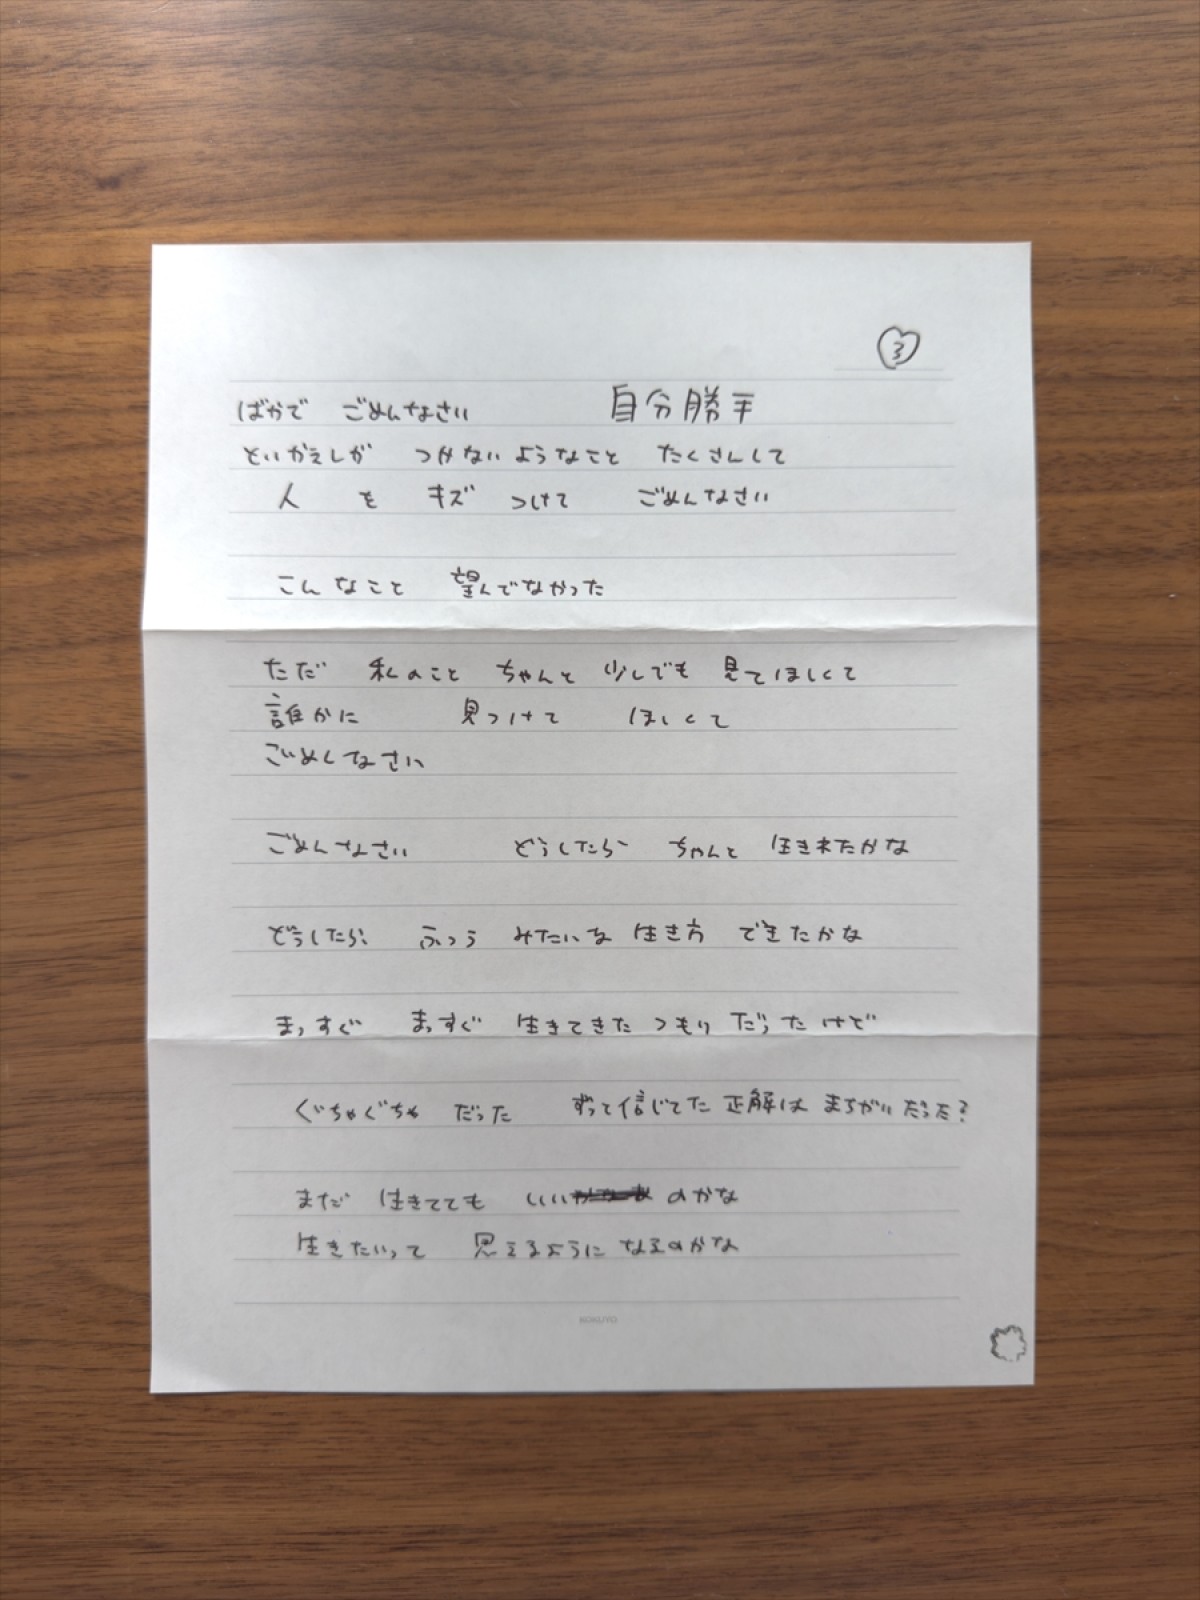 ③
ばかで ごめんなさい 自分勝手
といかえしが つかないようなこと たくさんして
人 を キズ つけて ごめんなさい
こんなこと 望んでなかった
ただ 私のこと ちゃんと 少しでも 見てほしくて
誰かに 見つけて ほしくて
ごめんなさい
ごめんなさい どうしたら ちゃんと 生きれたかな
どうしたら ふつう みたいな 生き方 できたかな
まっすぐ まっすぐ 生きてきた つもり だったけど
ぐちゃぐちゃ だった ずって信じてた 正解は まちがいだった?
まだ 生きてても いい のかな
生きたいって 思えるように なるのかな
KOKUYO